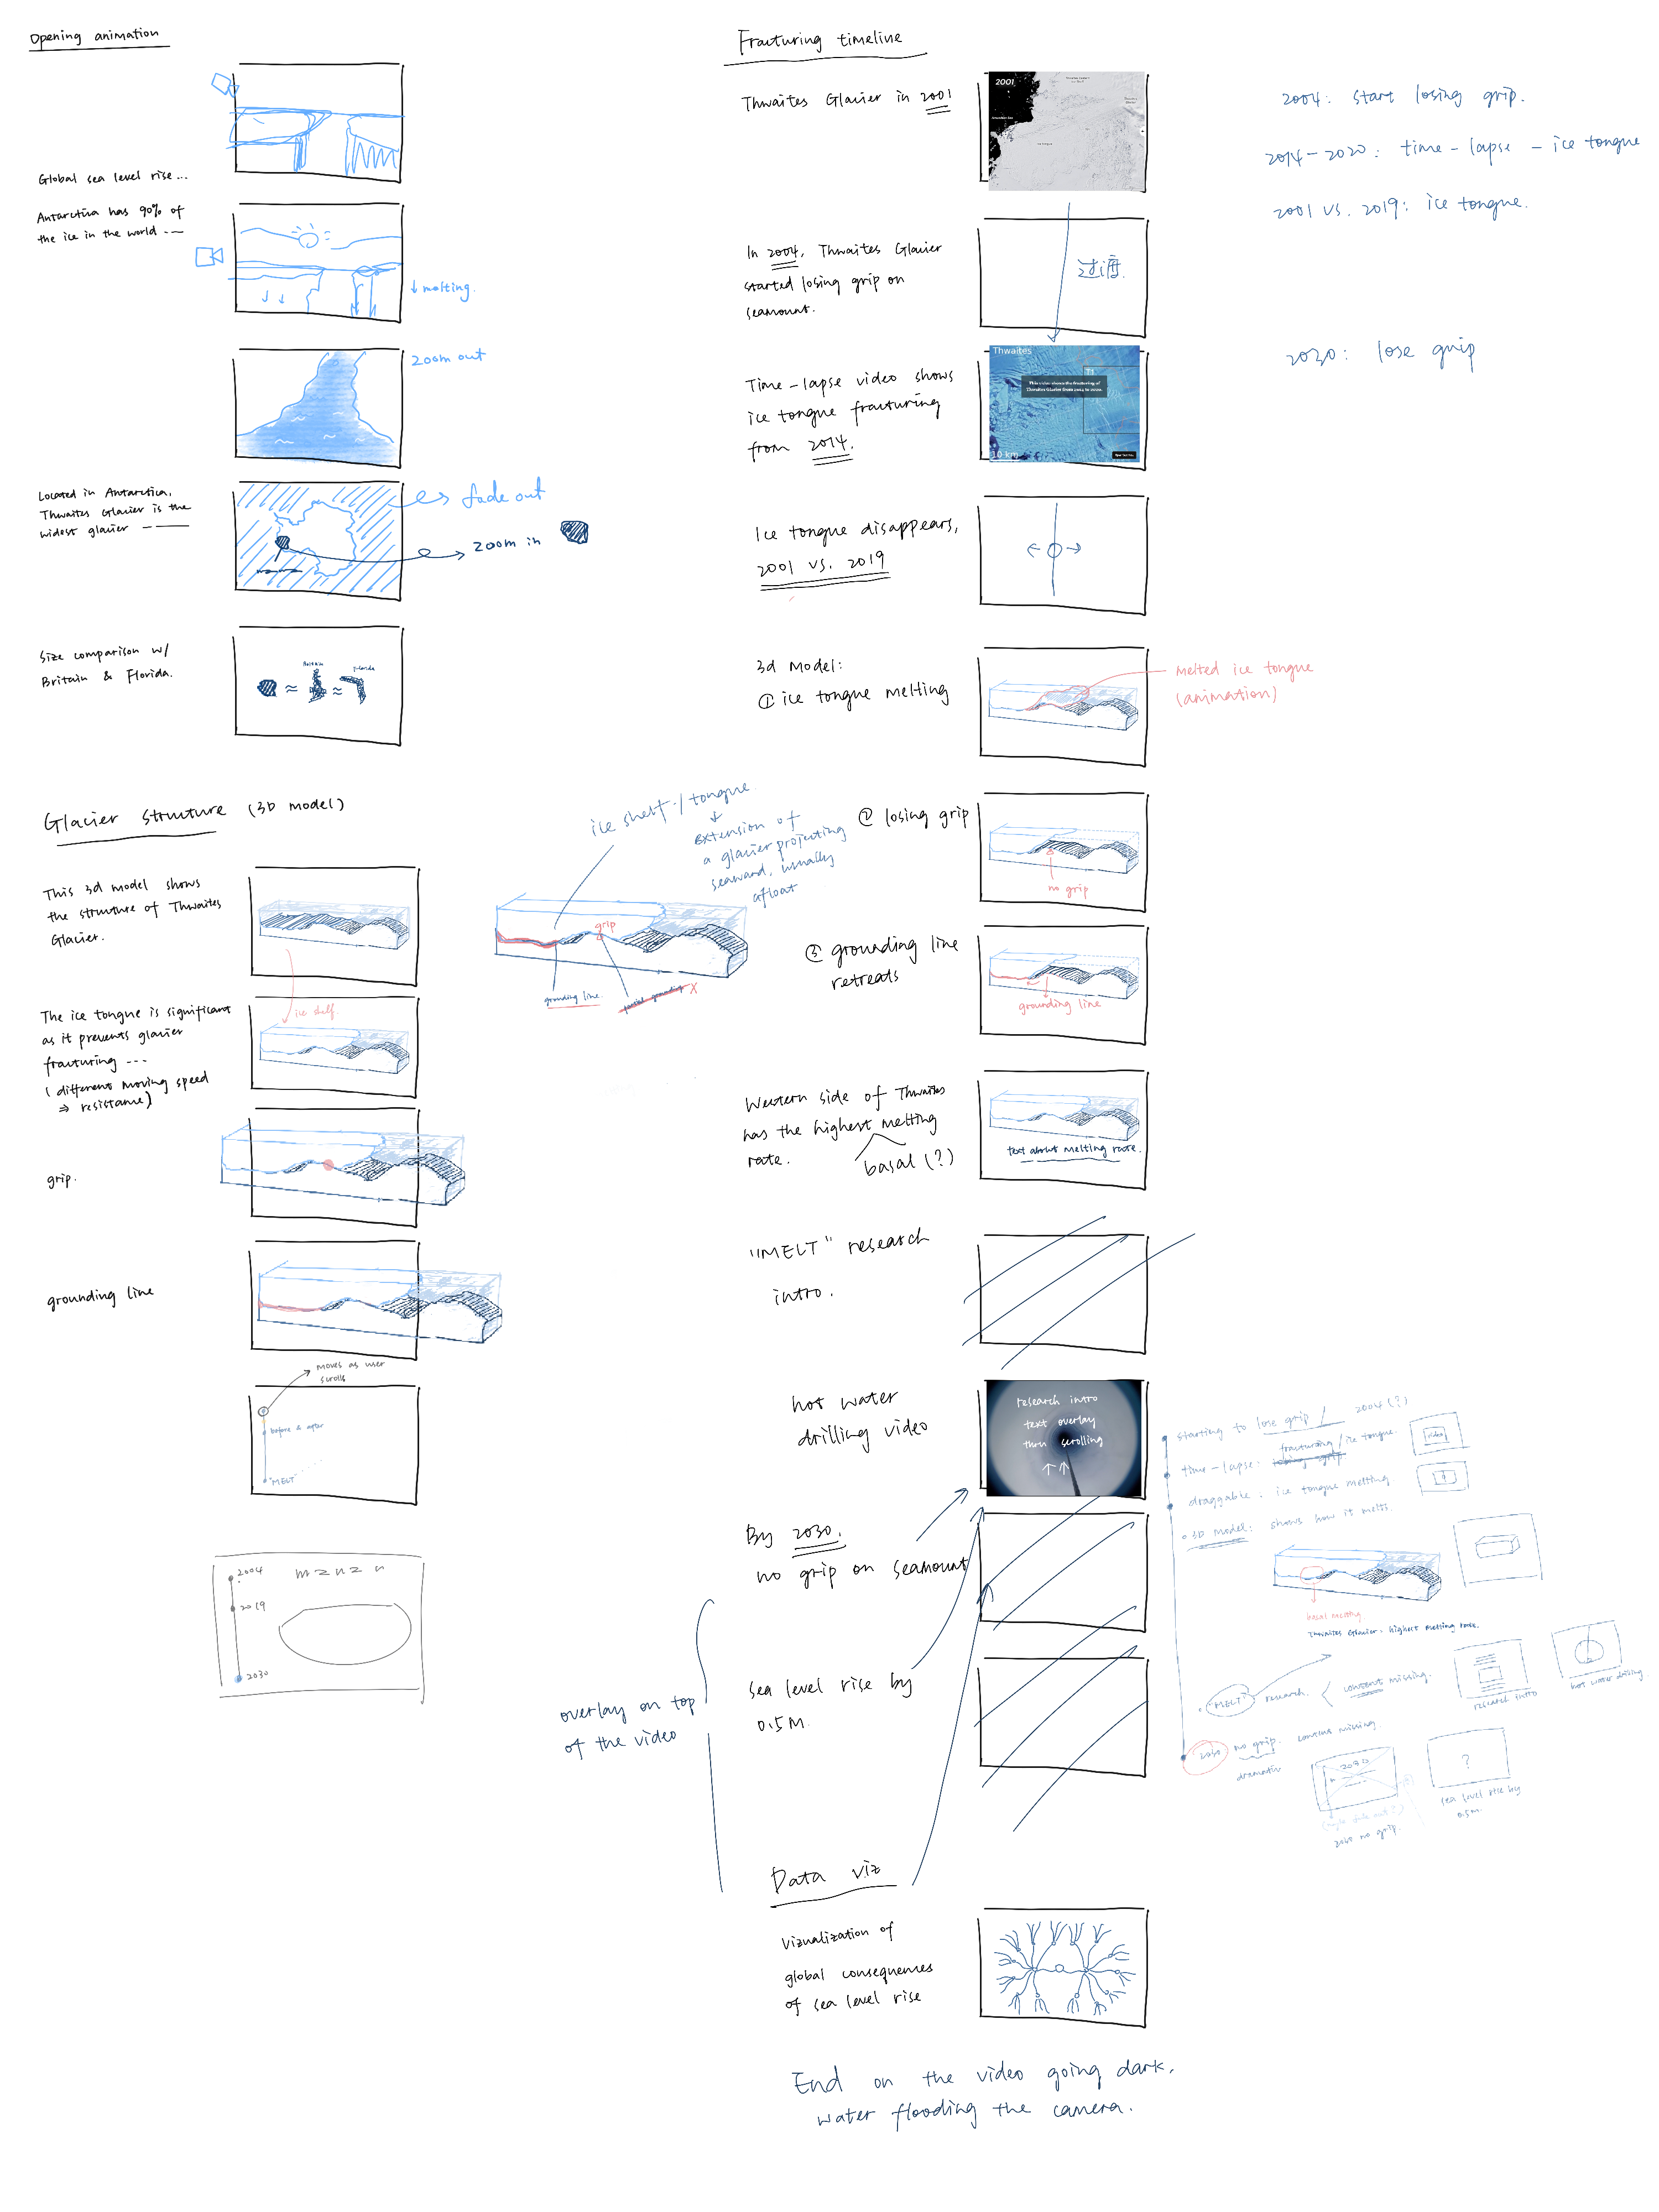 Opening animation
Global sea level rise...
Antarctica has 90% of
the ice in the world ---
↓ melting.
zoom out
Located in Antarctica,
Thwaites Glacier is the
widest glacier ---
fade out
zoom in
Size comparison w/
Britain & Florida.
Britain
Florida
≈ ≈
Glacier structure (3D model)
This 3d model shows
the structure of Thwaites
Glacier.
The ice tongue is significant
as it prevents glacier
fracturing ---
(different moving speed
⇒ resistance)
ice shelf.
grip.
grounding line
moves as user
scrolls
before & after
"MELT"
2004
2019
2030
ice shelf / tongue.
extension of
a glacier projecting
seaward, usually
afloat
grip
grounding line.
partial grounding X
Fracturing timeline
Thwaites Glacier in 2001
2001
In 2004, Thwaites Glacier
started losing grip on
seamount.
过渡
Time-lapse video shows
ice tongue fracturing
from 2014.
Thwaites
This video shows the fracturing of
Thwaites Glacier from 2014 to 2020.
10 km
Ice tongue disappears,
2001 vs. 2019
3d Model:
① ice tongue melting
Melted ice tongue
(animation)
② losing grip
no grip
③ grounding line
retreats
grounding line
Western side of Thwaites
has the highest melting
rate.
basal (?)
text about melting rate.
"MELT" research
intro.
hot water
drilling video
research intro
text overlay
thru scrolling
↑↑
By 2030,
no grip on seamount
sea level rise by
0.5M.
overlay on top
of the video
Data viz
Vizualization of
global consequences
of sea level rise
End on the video going dark,
water flooding the camera.
2004: start losing grip.
2014-2020: time-lapse - ice tongue
2001 vs. 2019: ice tongue.
2030: lose grip
starting to lose grip / 2004(?)
time-lapse: losing grip fracturing/ice tongue.
video
draggable. ice tongue melting
3D model: shows how it melts.
basal melting
Thwaites Glacier. highest melting rate.
"MELT" research. < content missing.
research intro
hot water drilling
2030 no grip. content missing
dramatic
2030
2030 no grip.
?
sea level rise by
0.5M.